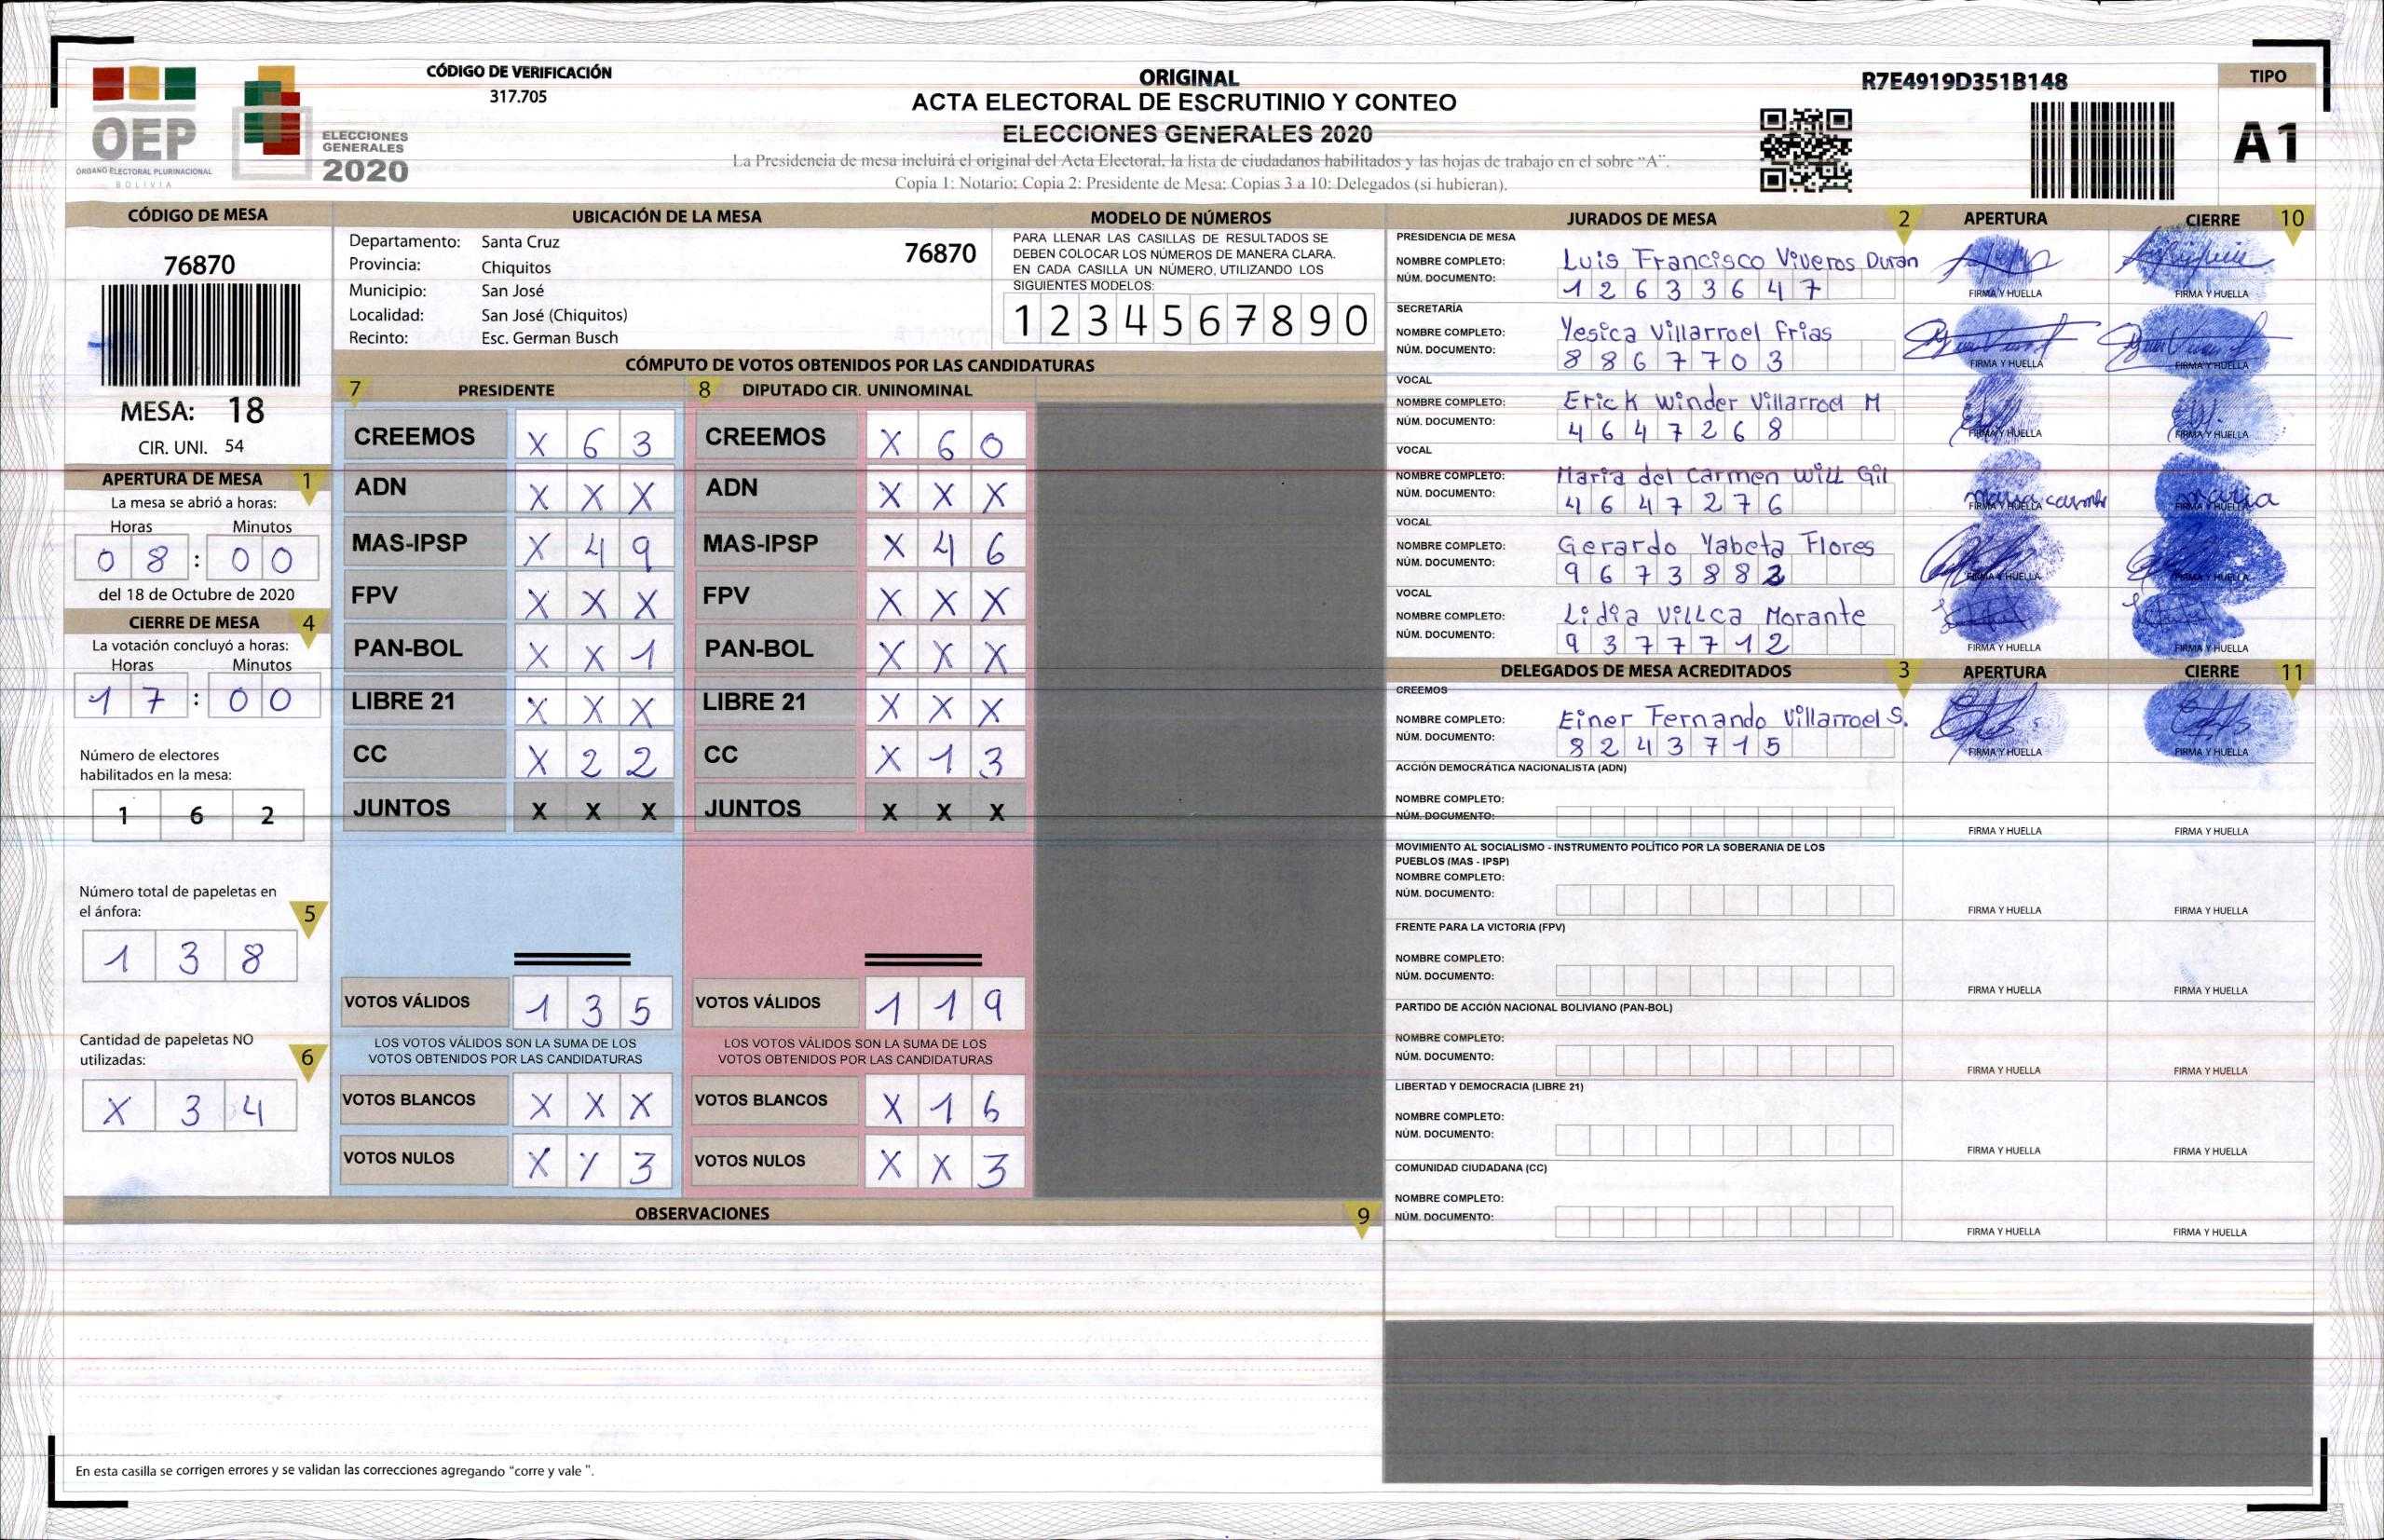 OEP
ÓRGANO ELECTORAL PLURINACIONAL
BOLIVIA
ELECCIONES
GENERALES
2020
CÓDIGO DE VERIFICACIÓN
317.705
ORIGINAL
ACTA ELECTORAL DE ESCRUTINIO Y CONTEO
ELECCIONES GENERALES 2020
La Presidencia de mesa incluirá el original del Acta Electoral, la lista de ciudadanos habilitados y las hojas de trabajo en el sobre “A”.
Copia 1: Notario; Copia 2: Presidente de Mesa; Copias 3 a 10: Delegados (si hubieran).
R7E4919D351B148
TIPO
A1
CÓDIGO DE MESA
76870
MESA: 18
CIR. UNI. 54
APERTURA DE MESA 1
La mesa se abrió a horas:
Horas Minutos
0 8 : 0 0
del 18 de Octubre de 2020
CIERRE DE MESA 4
La votación concluyó a horas:
Horas Minutos
1 7 : 0 0
Número de electores
habilitados en la mesa:
1 6 2
Número total de papeletas en
el ánfora: 5
1 3 8
Cantidad de papeletas NO
utilizadas: 6
X 3 4
UBICACIÓN DE LA MESA
Departamento: Santa Cruz
76870
Provincia: Chiquitos
Municipio: San José
Localidad: San José (Chiquitos)
Recinto: Esc. German Busch
MODELO DE NÚMEROS
PARA LLENAR LAS CASILLAS DE RESULTADOS SE
DEBEN COLOCAR LOS NÚMEROS DE MANERA CLARA.
EN CADA CASILLA UN NÚMERO, UTILIZANDO LOS
SIGUIENTES MODELOS:
1 2 3 4 5 6 7 8 9 0
CÓMPUTO DE VOTOS OBTENIDOS POR LAS CANDIDATURAS
7 PRESIDENTE 8 DIPUTADO CIR. UNINOMINAL
CREEMOS X 6 3 CREEMOS X 6 0
ADN X X X ADN X X X
MAS-IPSP X 4 9 MAS-IPSP X 4 6
FPV X X X FPV X X X
PAN-BOL X X 1 PAN-BOL X X X
LIBRE 21 X X X LIBRE 21 X X X
CC X 2 2 CC X 1 3
JUNTOS X X X JUNTOS X X X
VOTOS VÁLIDOS 1 3 5 VOTOS VÁLIDOS 1 1 9
LOS VOTOS VÁLIDOS SON LA SUMA DE LOS LOS VOTOS VÁLIDOS SON LA SUMA DE LOS
VOTOS OBTENIDOS POR LAS CANDIDATURAS VOTOS OBTENIDOS POR LAS CANDIDATURAS
VOTOS BLANCOS X X X VOTOS BLANCOS X 1 6
VOTOS NULOS X X 3 VOTOS NULOS X X 3
OBSERVACIONES 9
En esta casilla se corrigen errores y se validan las correcciones agregando “corre y vale ”.
JURADOS DE MESA 2 APERTURA CIERRE 10
PRESIDENCIA DE MESA
NOMBRE COMPLETO: Luis Francisco Viveros Duran
NÚM. DOCUMENTO: 1 2 6 3 3 6 4 7
FIRMA Y HUELLA FIRMA Y HUELLA
SECRETARÍA
NOMBRE COMPLETO: Yesica Villarroel Frias
NÚM. DOCUMENTO: 8 8 6 7 7 0 3
FIRMA Y HUELLA FIRMA Y HUELLA
VOCAL
NOMBRE COMPLETO: Erick Winder Villarroel M
NÚM. DOCUMENTO: 4 6 4 7 2 6 8
FIRMA Y HUELLA FIRMA Y HUELLA
VOCAL
NOMBRE COMPLETO: Maria del Carmen Will Gil
NÚM. DOCUMENTO: 4 6 4 7 2 7 6
FIRMA Y HUELLA FIRMA Y HUELLA
VOCAL
NOMBRE COMPLETO: Gerardo Yabeta Flores
NÚM. DOCUMENTO: 9 6 7 3 8 8 2
FIRMA Y HUELLA FIRMA Y HUELLA
VOCAL
NOMBRE COMPLETO: Lidia Villca Morante
NÚM. DOCUMENTO: 9 3 7 7 7 1 2
FIRMA Y HUELLA FIRMA Y HUELLA
DELEGADOS DE MESA ACREDITADOS 3 APERTURA CIERRE 11
CREEMOS
NOMBRE COMPLETO: Einer Fernando Villarroel S.
NÚM. DOCUMENTO: 8 2 4 3 7 1 5
FIRMA Y HUELLA FIRMA Y HUELLA
ACCIÓN DEMOCRÁTICA NACIONALISTA (ADN)
NOMBRE COMPLETO:
NÚM. DOCUMENTO:
FIRMA Y HUELLA FIRMA Y HUELLA
MOVIMIENTO AL SOCIALISMO - INSTRUMENTO POLÍTICO POR LA SOBERANIA DE LOS
PUEBLOS (MAS - IPSP)
NOMBRE COMPLETO:
NÚM. DOCUMENTO:
FIRMA Y HUELLA FIRMA Y HUELLA
FRENTE PARA LA VICTORIA (FPV)
NOMBRE COMPLETO:
NÚM. DOCUMENTO:
FIRMA Y HUELLA FIRMA Y HUELLA
PARTIDO DE ACCIÓN NACIONAL BOLIVIANO (PAN-BOL)
NOMBRE COMPLETO:
NÚM. DOCUMENTO:
FIRMA Y HUELLA FIRMA Y HUELLA
LIBERTAD Y DEMOCRACIA (LIBRE 21)
NOMBRE COMPLETO:
NÚM. DOCUMENTO:
FIRMA Y HUELLA FIRMA Y HUELLA
COMUNIDAD CIUDADANA (CC)
NOMBRE COMPLETO:
NÚM. DOCUMENTO:
FIRMA Y HUELLA FIRMA Y HUELLA